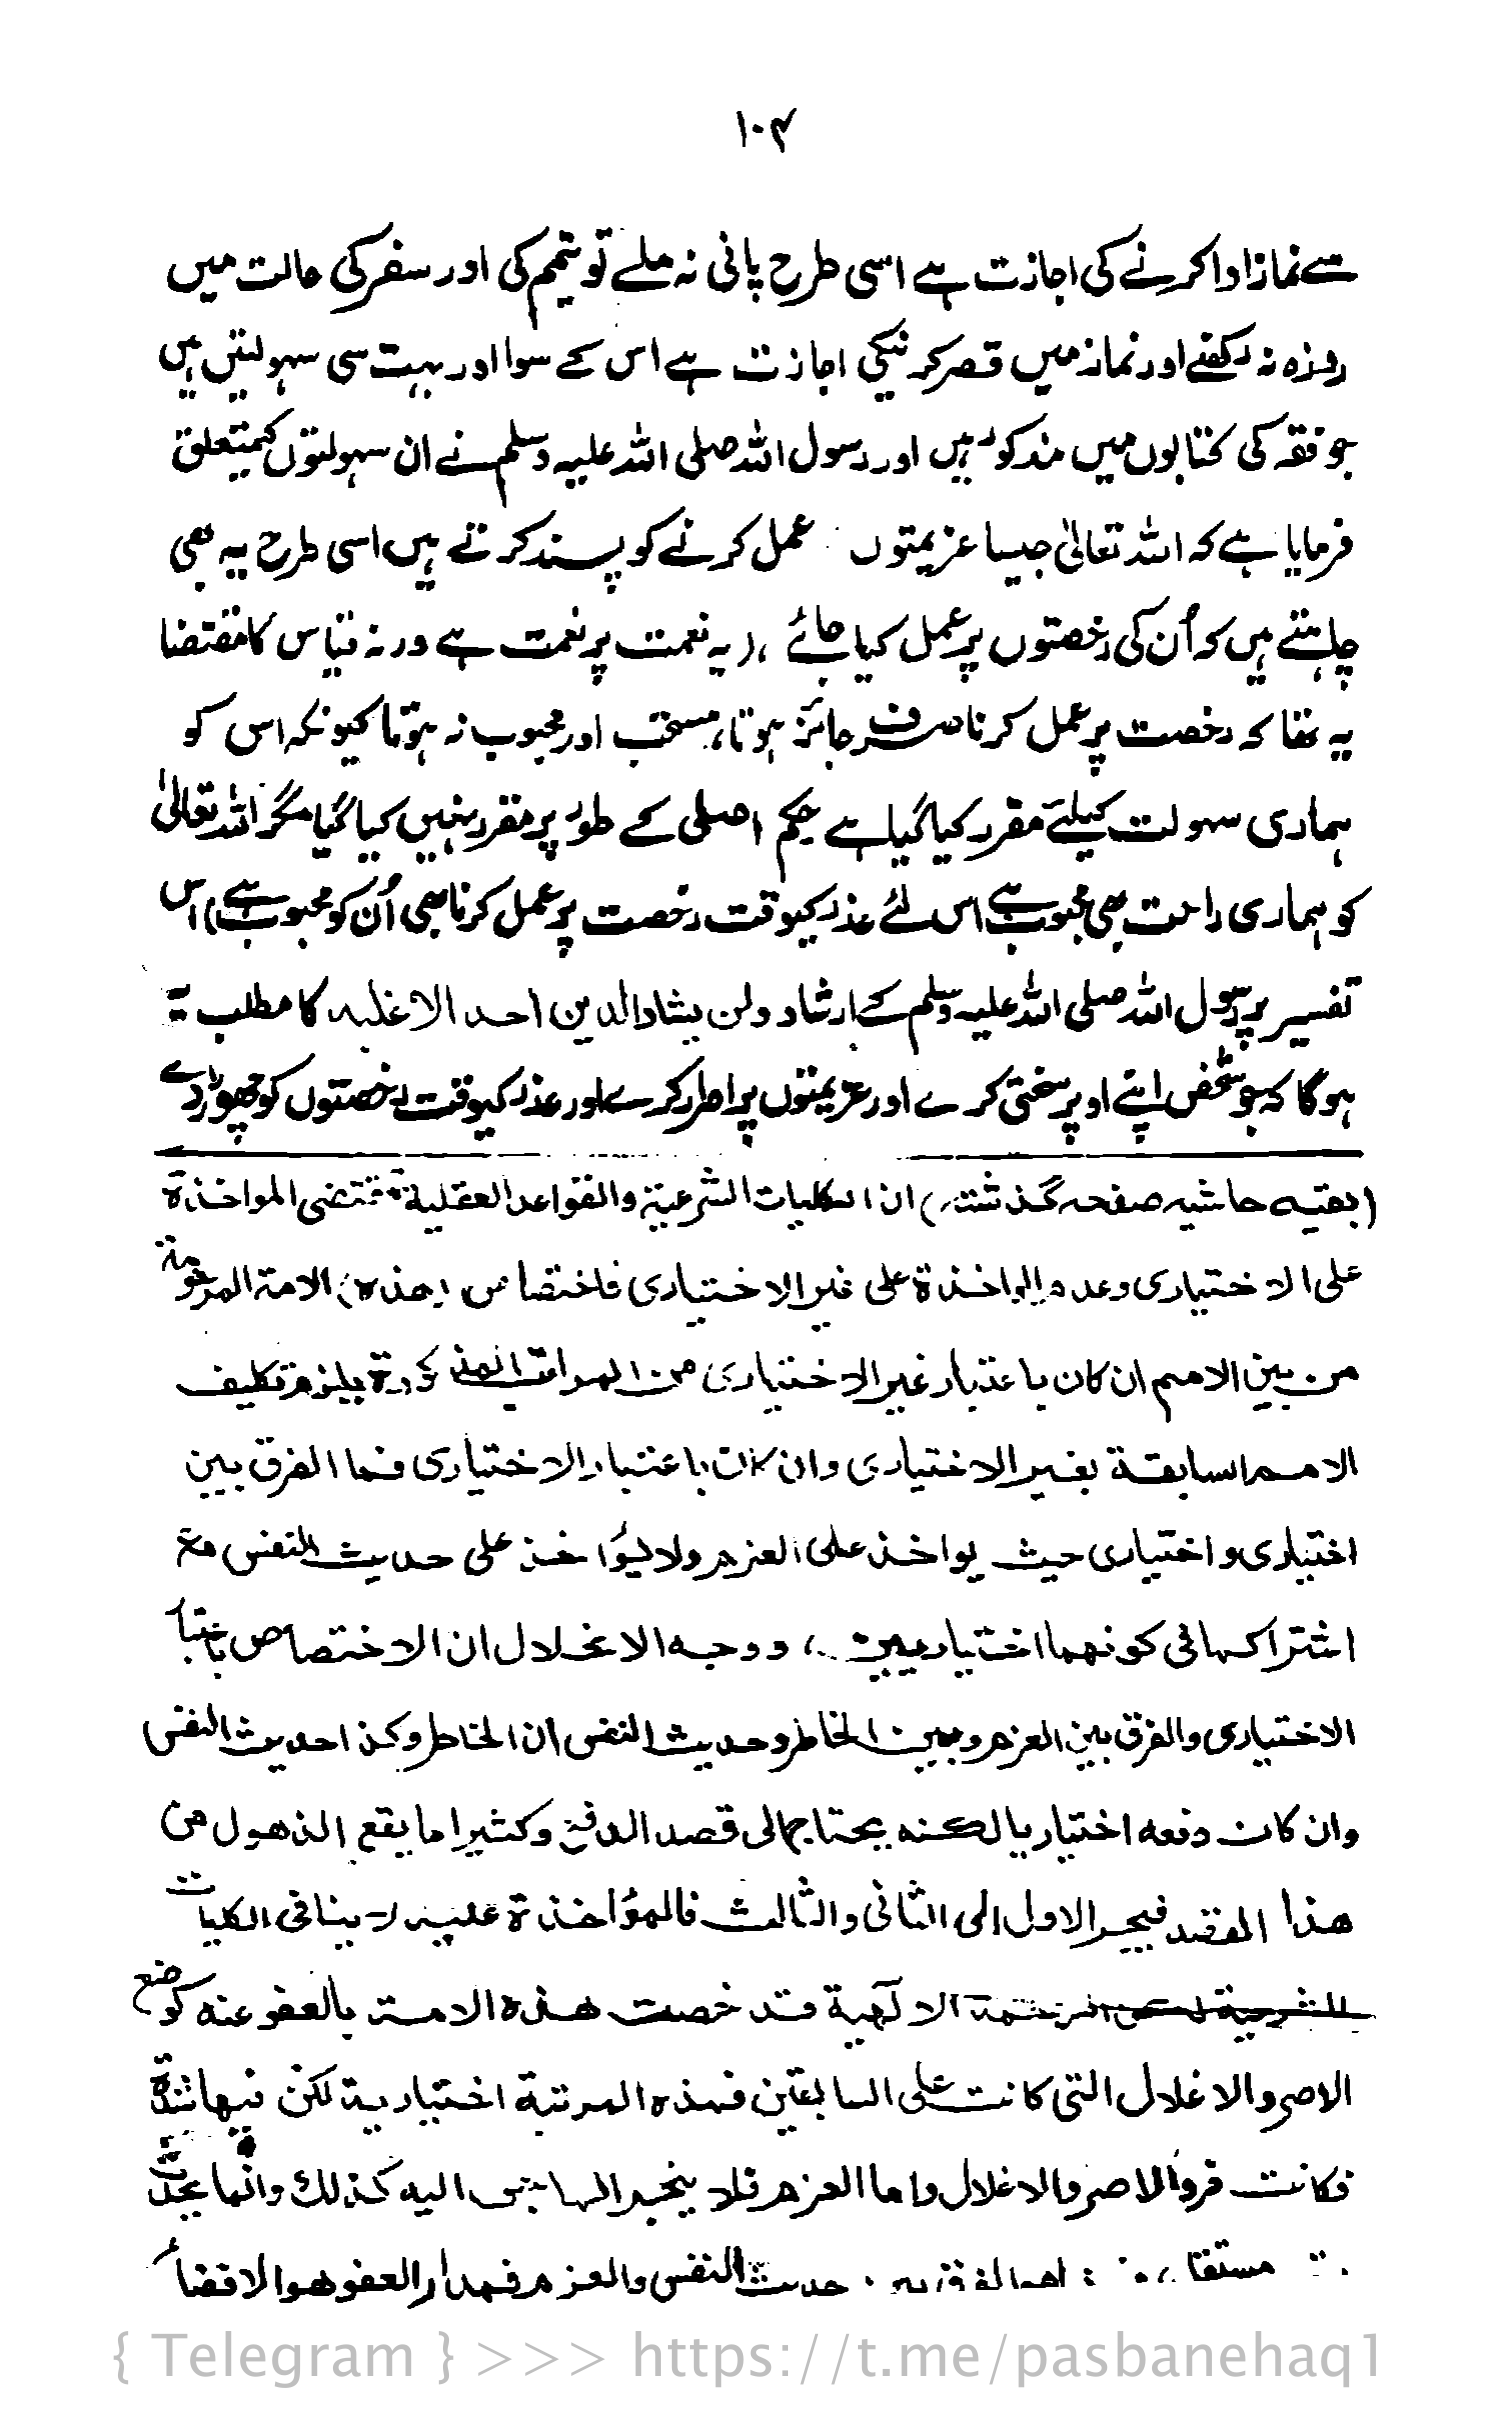 ۱۰۴
سے نماز ادا کرنے کی اجازت ہے اسی طرح پانی نہ ملے تو تیمم کی اور سفر کی حالت میں
روزہ نہ رکھنے اور نماز میں قصر کرنیکی اجازت ہے اس کے سوا اور بہت سی سہولتیں ہیں
جو فقہ کی کتابوں میں مذکور ہیں اور رسول اللہ صلی اللہ علیہ وسلم نے ان سہولتوں کیمتعلق
فرمایا ہے کہ اللہ تعالیٰ جیسا عزیمتوں عمل کرنے کو پسند کرتے ہیں اسی طرح یہ بھی
چاہتے ہیں کہ اُن کی رخصتوں پر عمل کیا جائے ، (یہ نعمت پر نعمت ہے ورنہ قیاس کا مقتضا
یہ تھا کہ رخصت پر عمل کرنا صرف جائز ہوتا، مستحب اور محبوب نہ ہوتا کیونکہ اس کو
ہماری سہولت کیلئے مقرر کیا گیا ہے حکم اصلی کے طور پر مقرر نہیں کیا گیا مگر اللہ تعالیٰ
کو ہماری راحت بھی محبوب ہے اس لئے عذر کیوقت رخصت پر عمل کرنا بھی اُن کو محبوب ہے) اس
تفسیر پر رسول اللہ صلی اللہ علیہ وسلم کے ارشاد ولن یشاد الدین احد الا غلبہ کا مطلب یہ
ہوگا کہ جو شخص اپنے اوپر سختی کرے اور عزیمتوں پر اصرار کرے اور عذر کیوقت رخصتوں کو چھوڑ دے
(بقیہ حاشیہ صفحہ گذشتہ) ان الکلیات الشرعیة والقواعد العقلیة تقتضی المواخذة
علی الاختیاری وعدم المواخذة علی غیر الاختیاری فاختصاص (ھذہ) الامة المرحومة
من بین الامم ان کان باعتبار غیر الاختیاری من المراتب المذکورة یلزم تکلیف
الامم السابقة بغیر الاختیاری وان کان باعتبار الاختیاری فما الفرق بین
اختیاری و اختیاری حیث یواخذ علی العزم ولا یؤاخذ علی حدیث النفس مع
اشتراکہما فی کونھما اختیاریین ، ووجہ الانحلال ان الاختصاص باعتبار
الاختیاری والفرق بین العزم وبین الخاطر وحدیث النفس ان الخاطر وکذا حدیث النفس
وان کان دفعہ اختیاریا لکنہ یحتاج الی قصد الدفع وکثیرا ما یقع الذھول من
ھذا القصد فیجر الاول الی الثانی والثالث فالمؤاخذة علیہ لا ینافی الکلیات
الشرعیة لکن الرحمة الالٰھیة قد خصت ھذہ الامة بالعفو عنہ کوضع
الاصر والاغلال التی کانت علی السابقین فھذہ المرتبة اختیاریة لکن فیھا شدة
فکانت الاصر والاغلال واما العزم فلا ینجر الیہ کذلك وانما یحدث
مستقلا حدیث النفس والعزم فمدار العفو ھو الافضاء
{ Telegram } >>> https://t.me/pasbanehaq1